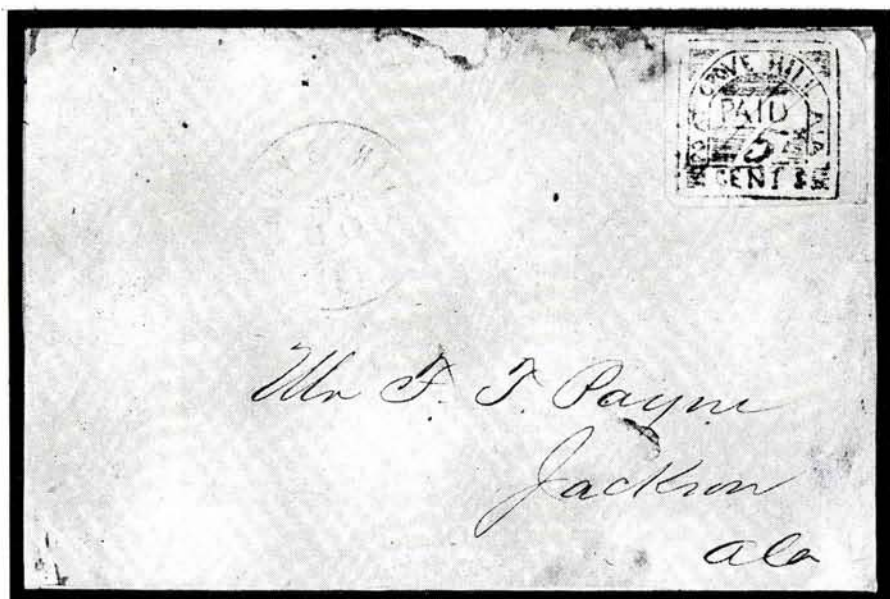 GROVE HILL ALA
PAID
5
CENTS
HILL
Mr F. T. Payne
Jackson
Ala